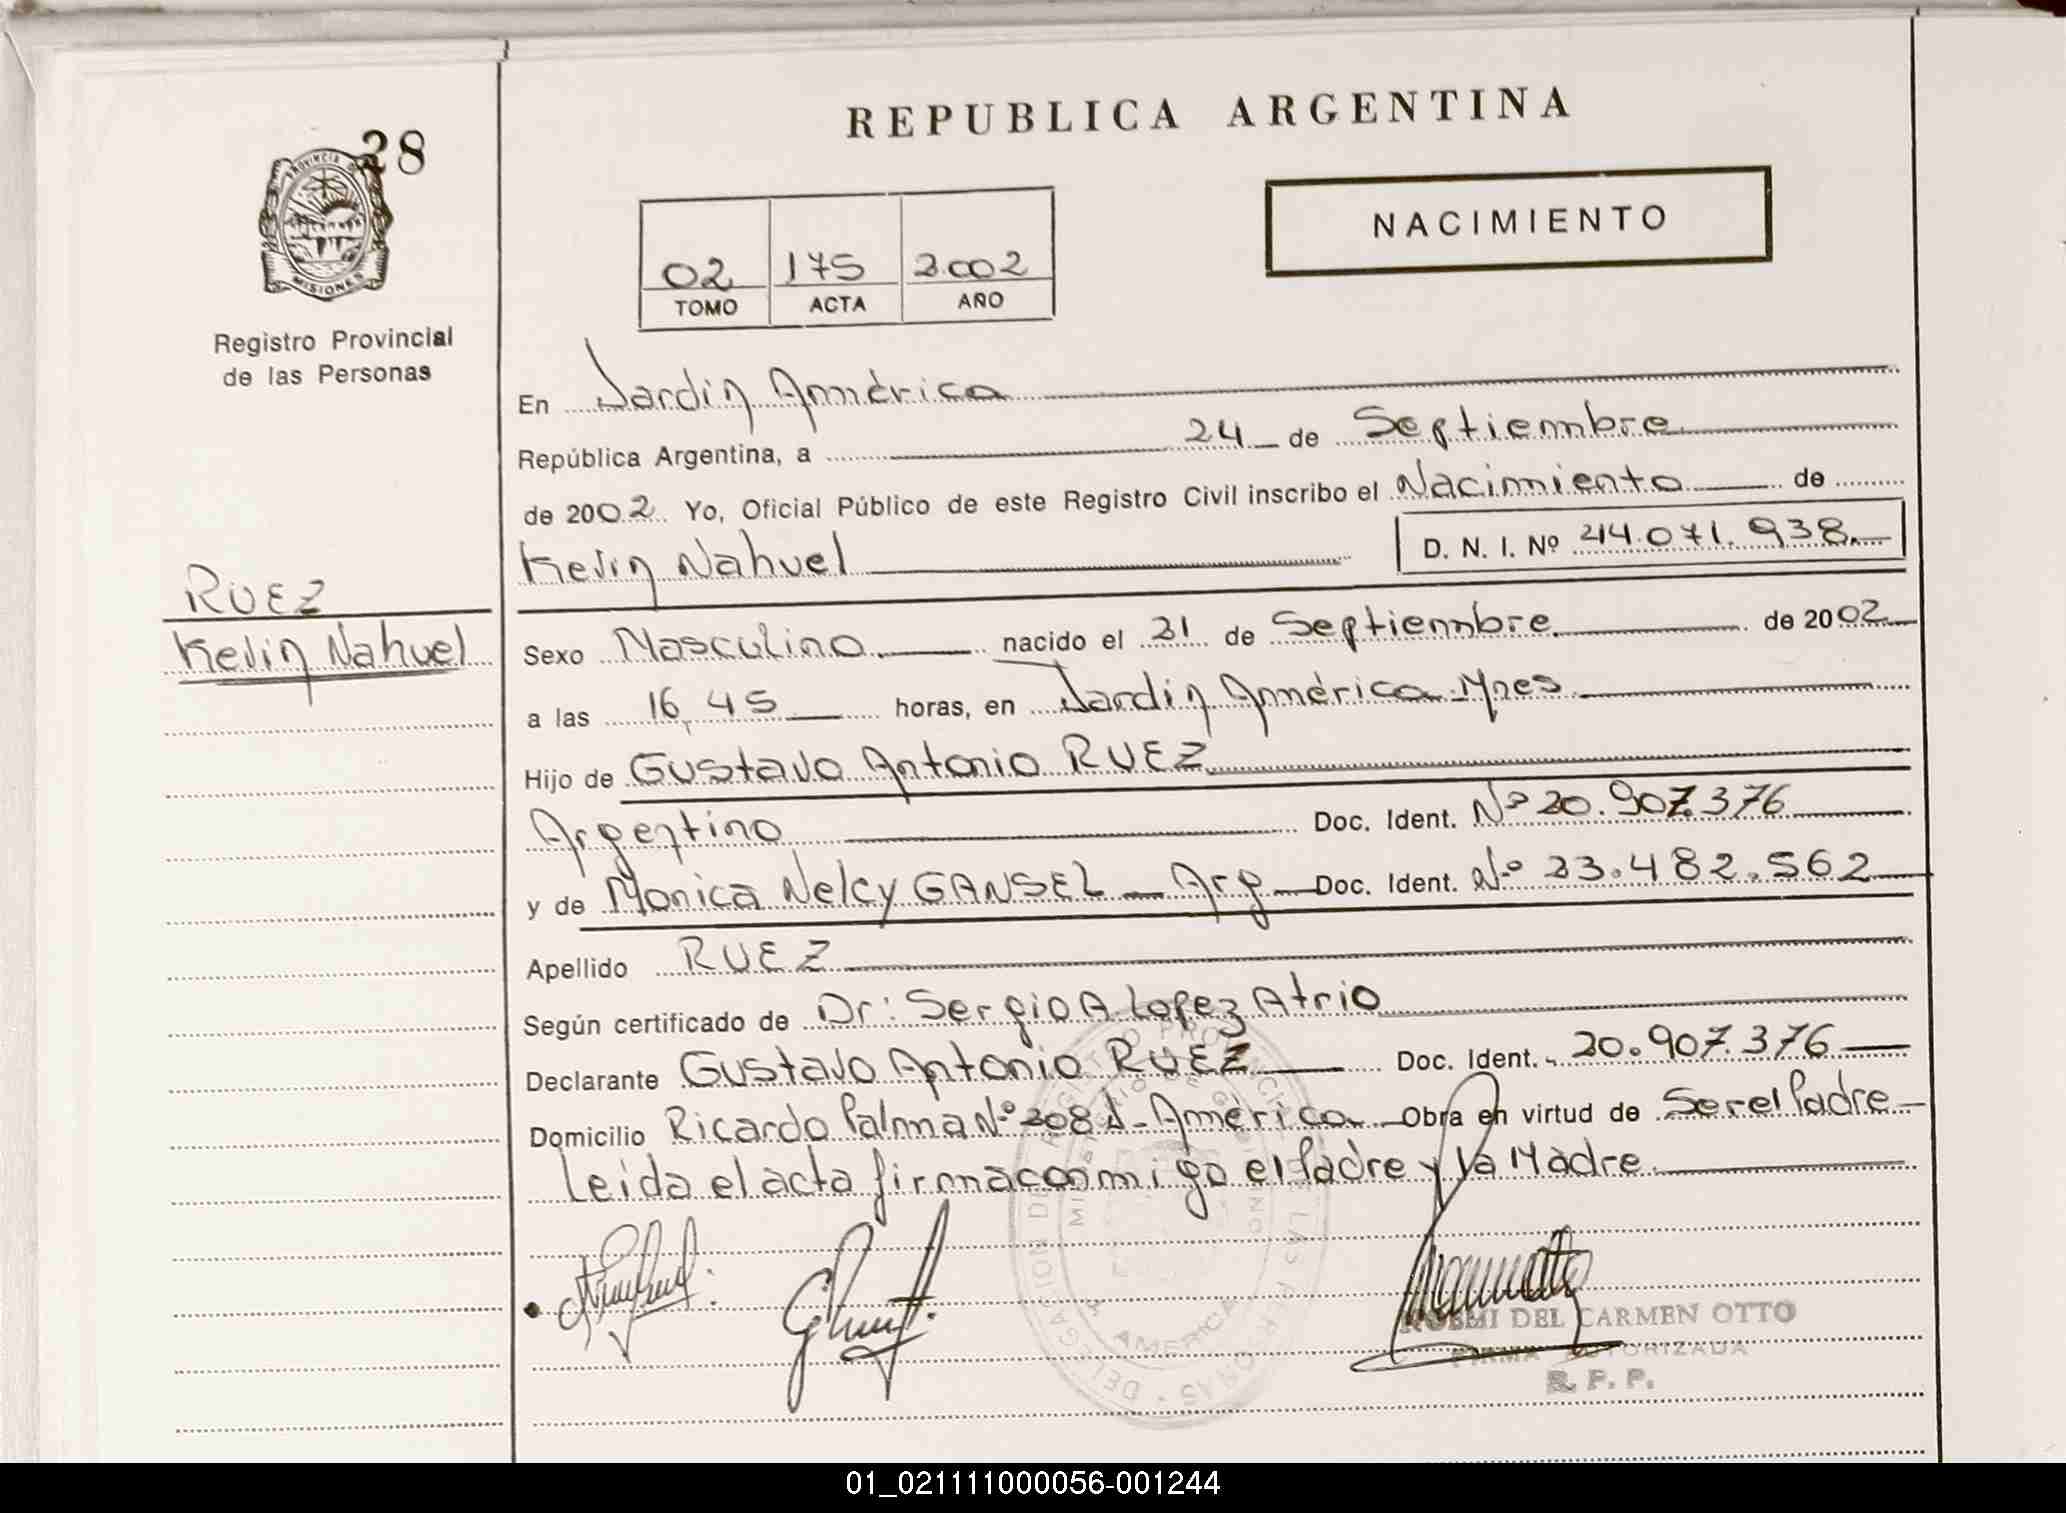 REPUBLICA ARGENTINA
28
PROVINCIA DE MISIONES
Registro Provincial
de las Personas
NACIMIENTO
02 175 2.002
TOMO ACTA AÑO
En Jardín América
República Argentina, a 24 de Septiembre
de 2002. Yo, Oficial Público de este Registro Civil inscribo el Nacimiento de
Kevin Nahuel D. N. I. Nº 44.071.938.
RUEZ
Kevin Nahuel
Sexo Masculino nacido el 21 de Septiembre de 2002
a las 16,45 horas, en Jardín América - Mnes
Hijo de Gustavo Antonio RUEZ
Argentino Doc. Ident. Nº 20.907.376
y de Monica Nelcy GANSEL - Arg Doc. Ident. Nº 23.482.562
Apellido RUEZ
Según certificado de Dr: Sergio A. Lopez Atrio
Declarante Gustavo Antonio RUEZ Doc. Ident. 20.907.376
Domicilio Ricardo Palma Nº 208 J - América Obra en virtud de Ser el Padre
Leida el acta firma con migo el Padre y la Madre
DELEGACION DE REGISTRO PROVINCIAL DE LAS PERSONAS
MINISTERIO DE GOBIERNO
AMERICA
ROSMI DEL CARMEN OTTO
FIRMA AUTORIZADA
R. P. P.
01_021111000056-001244